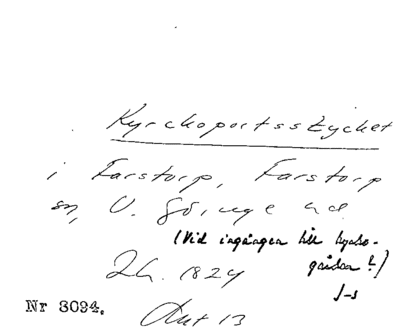 Kyrkoportsstycket
i Farstorp, Farstorp
sn, V. Göinge hd.
(Vid ingången till kyrko-
gården?)
Lh. 1824
J-s
Nr 3034. Akt 13